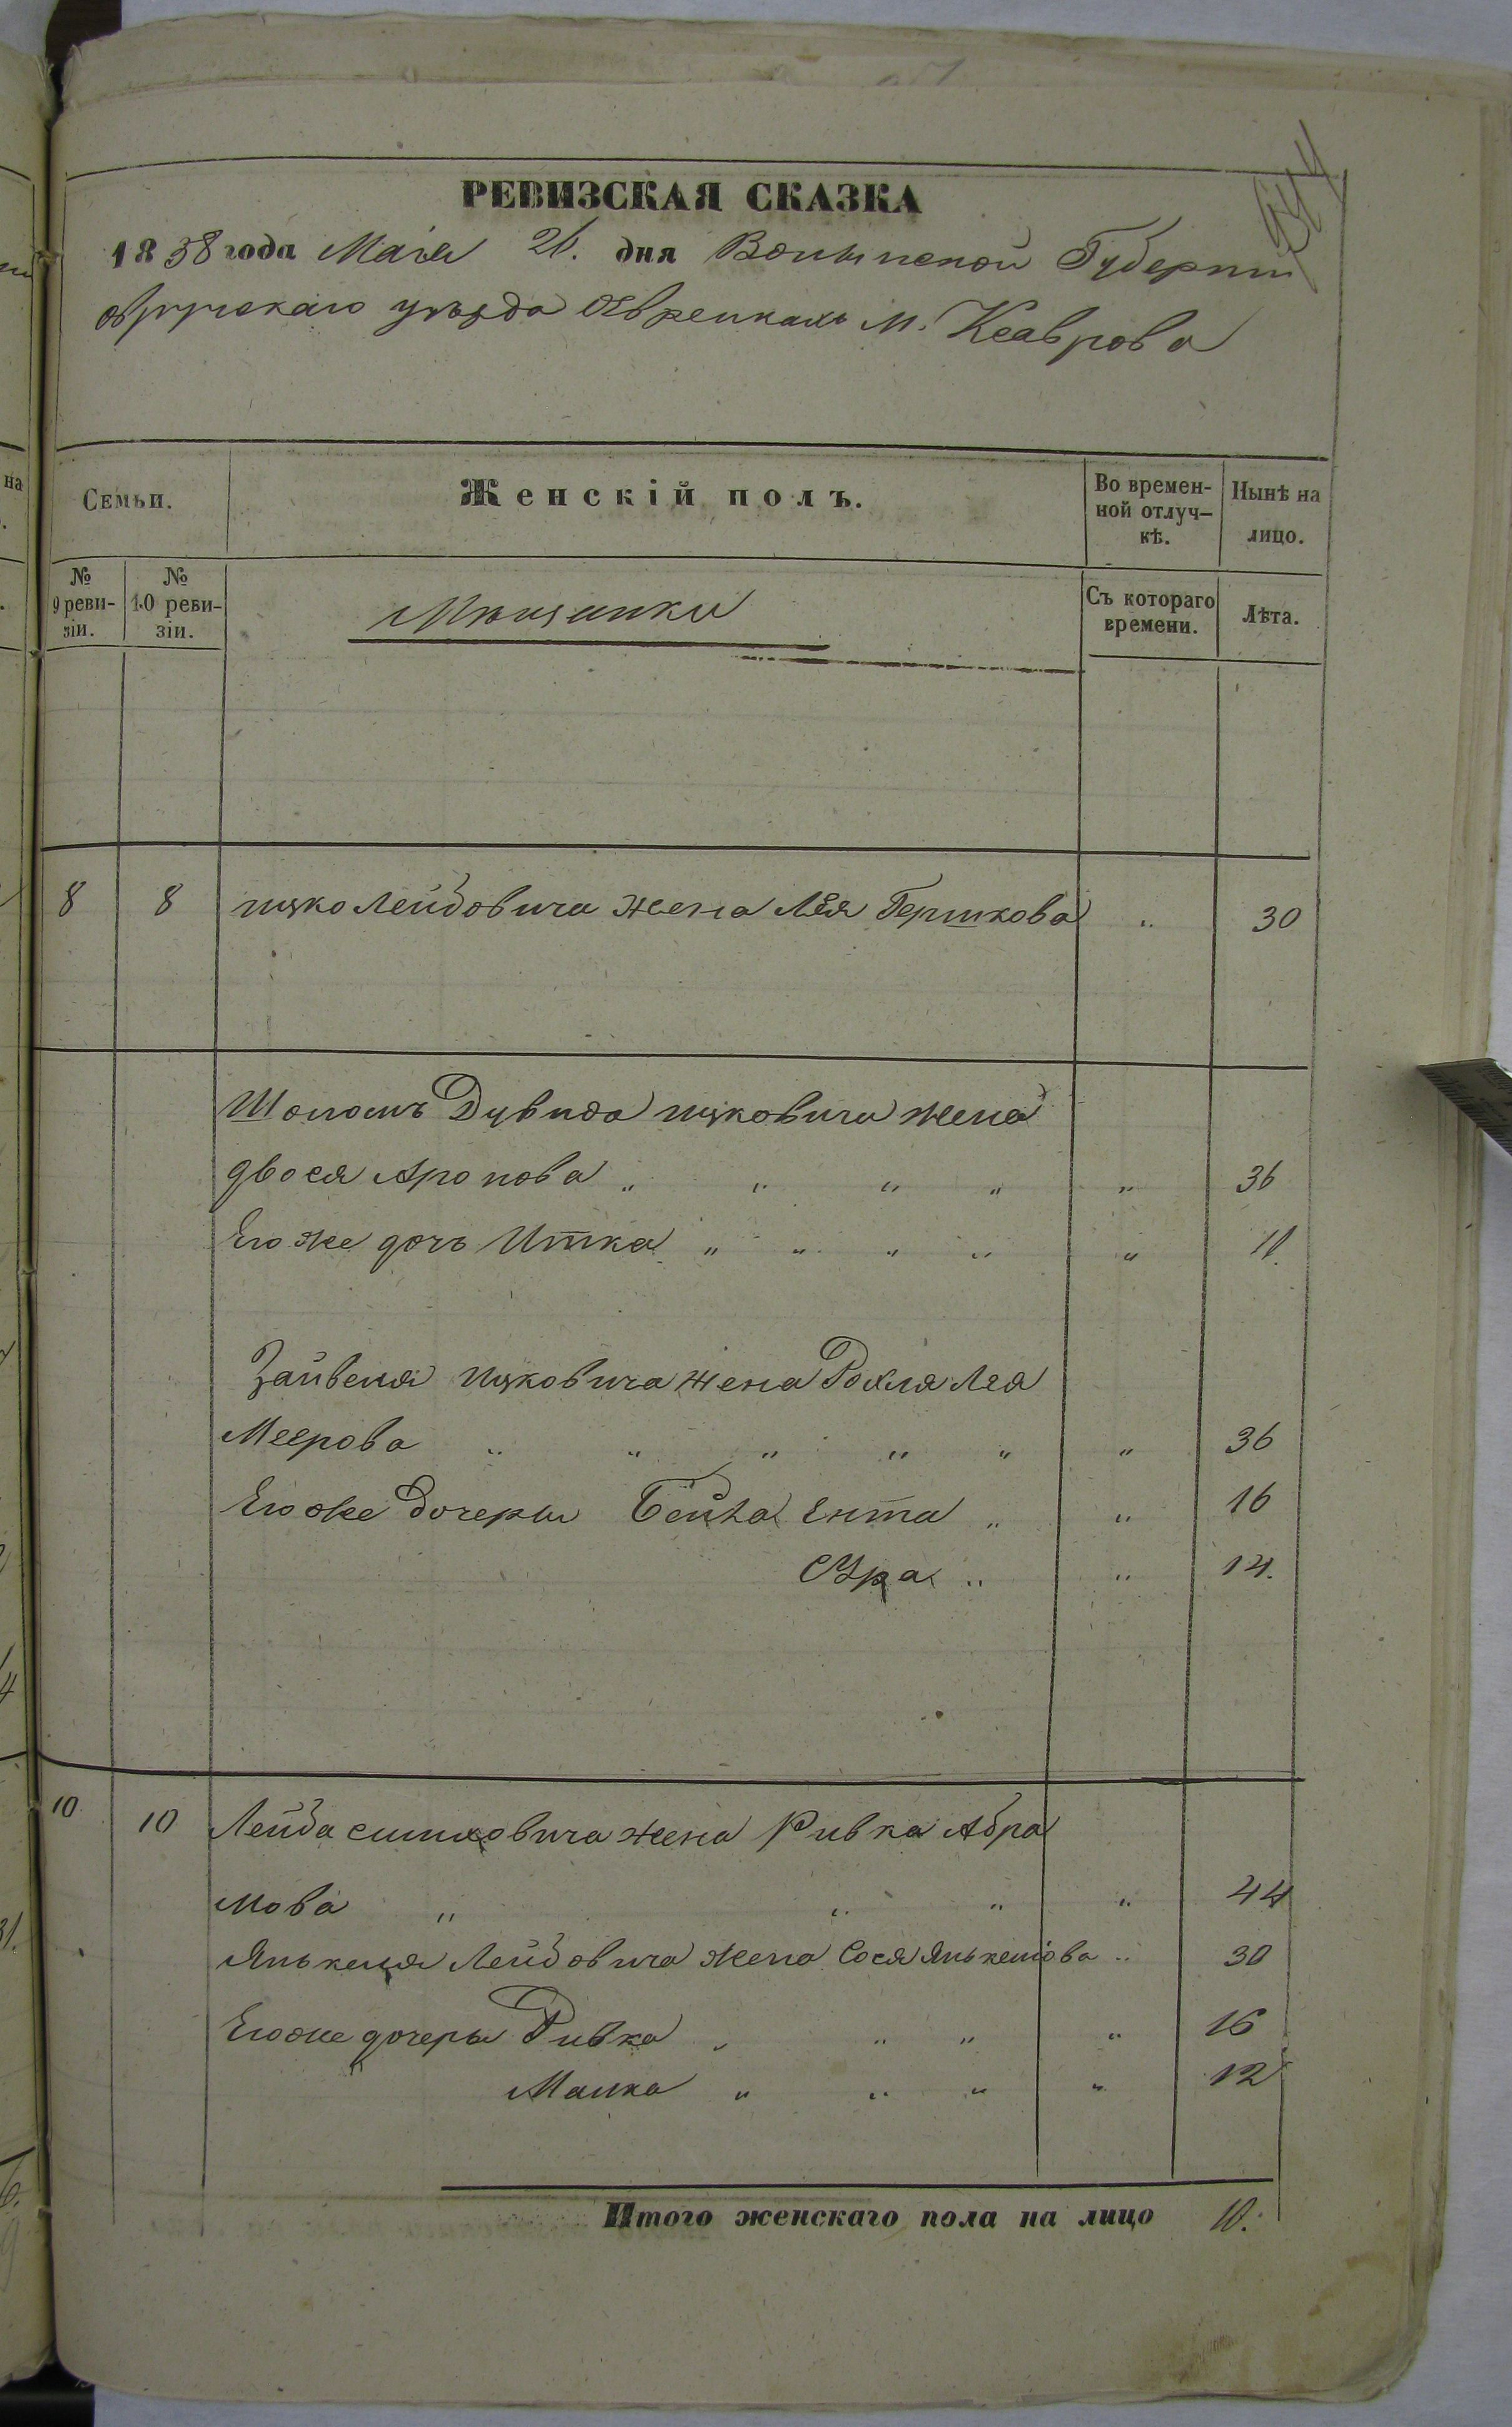 РЕВИЗСКАЯ СКАЗКА
1858 года Маія 26. дня Волынской Губерніи
овручскаго уѣзда о Евреикахъ м. Ксаврова
Семьи.
Женскій полъ.
Во времен-
ной отлуч-
кѣ.
Нынѣ на
лицо.
№
9 реви-
зіи.
№
10 реви-
зіи.
Мѣщанки
Съ котораго
времени.
Лѣта.
8 8 ицко Лейбовича жена Лея Гершкова „ 30
Шоломъ Дувида ицковича жена
двося Аронова „ „ „ „ „ 36
Его же дочь Итка „ „ „ „ „ 11.
Зайвеля ицковича жена Рохля Лея
Меерова „ „ „ „ „ „ 36
Его же дочеры Бейла Ента „ „ 16
Сура „ „ 14.
10 10 Лейба симховича жена Ривка Абра
мова „ „ „ „ 44
Янькеля Лейбовича жена Сося Янькелова „ 30
Его же дочеры Ривка „ „ „ „ 16
Малка „ „ „ „ 12
Итого женскаго пола на лицо 10.